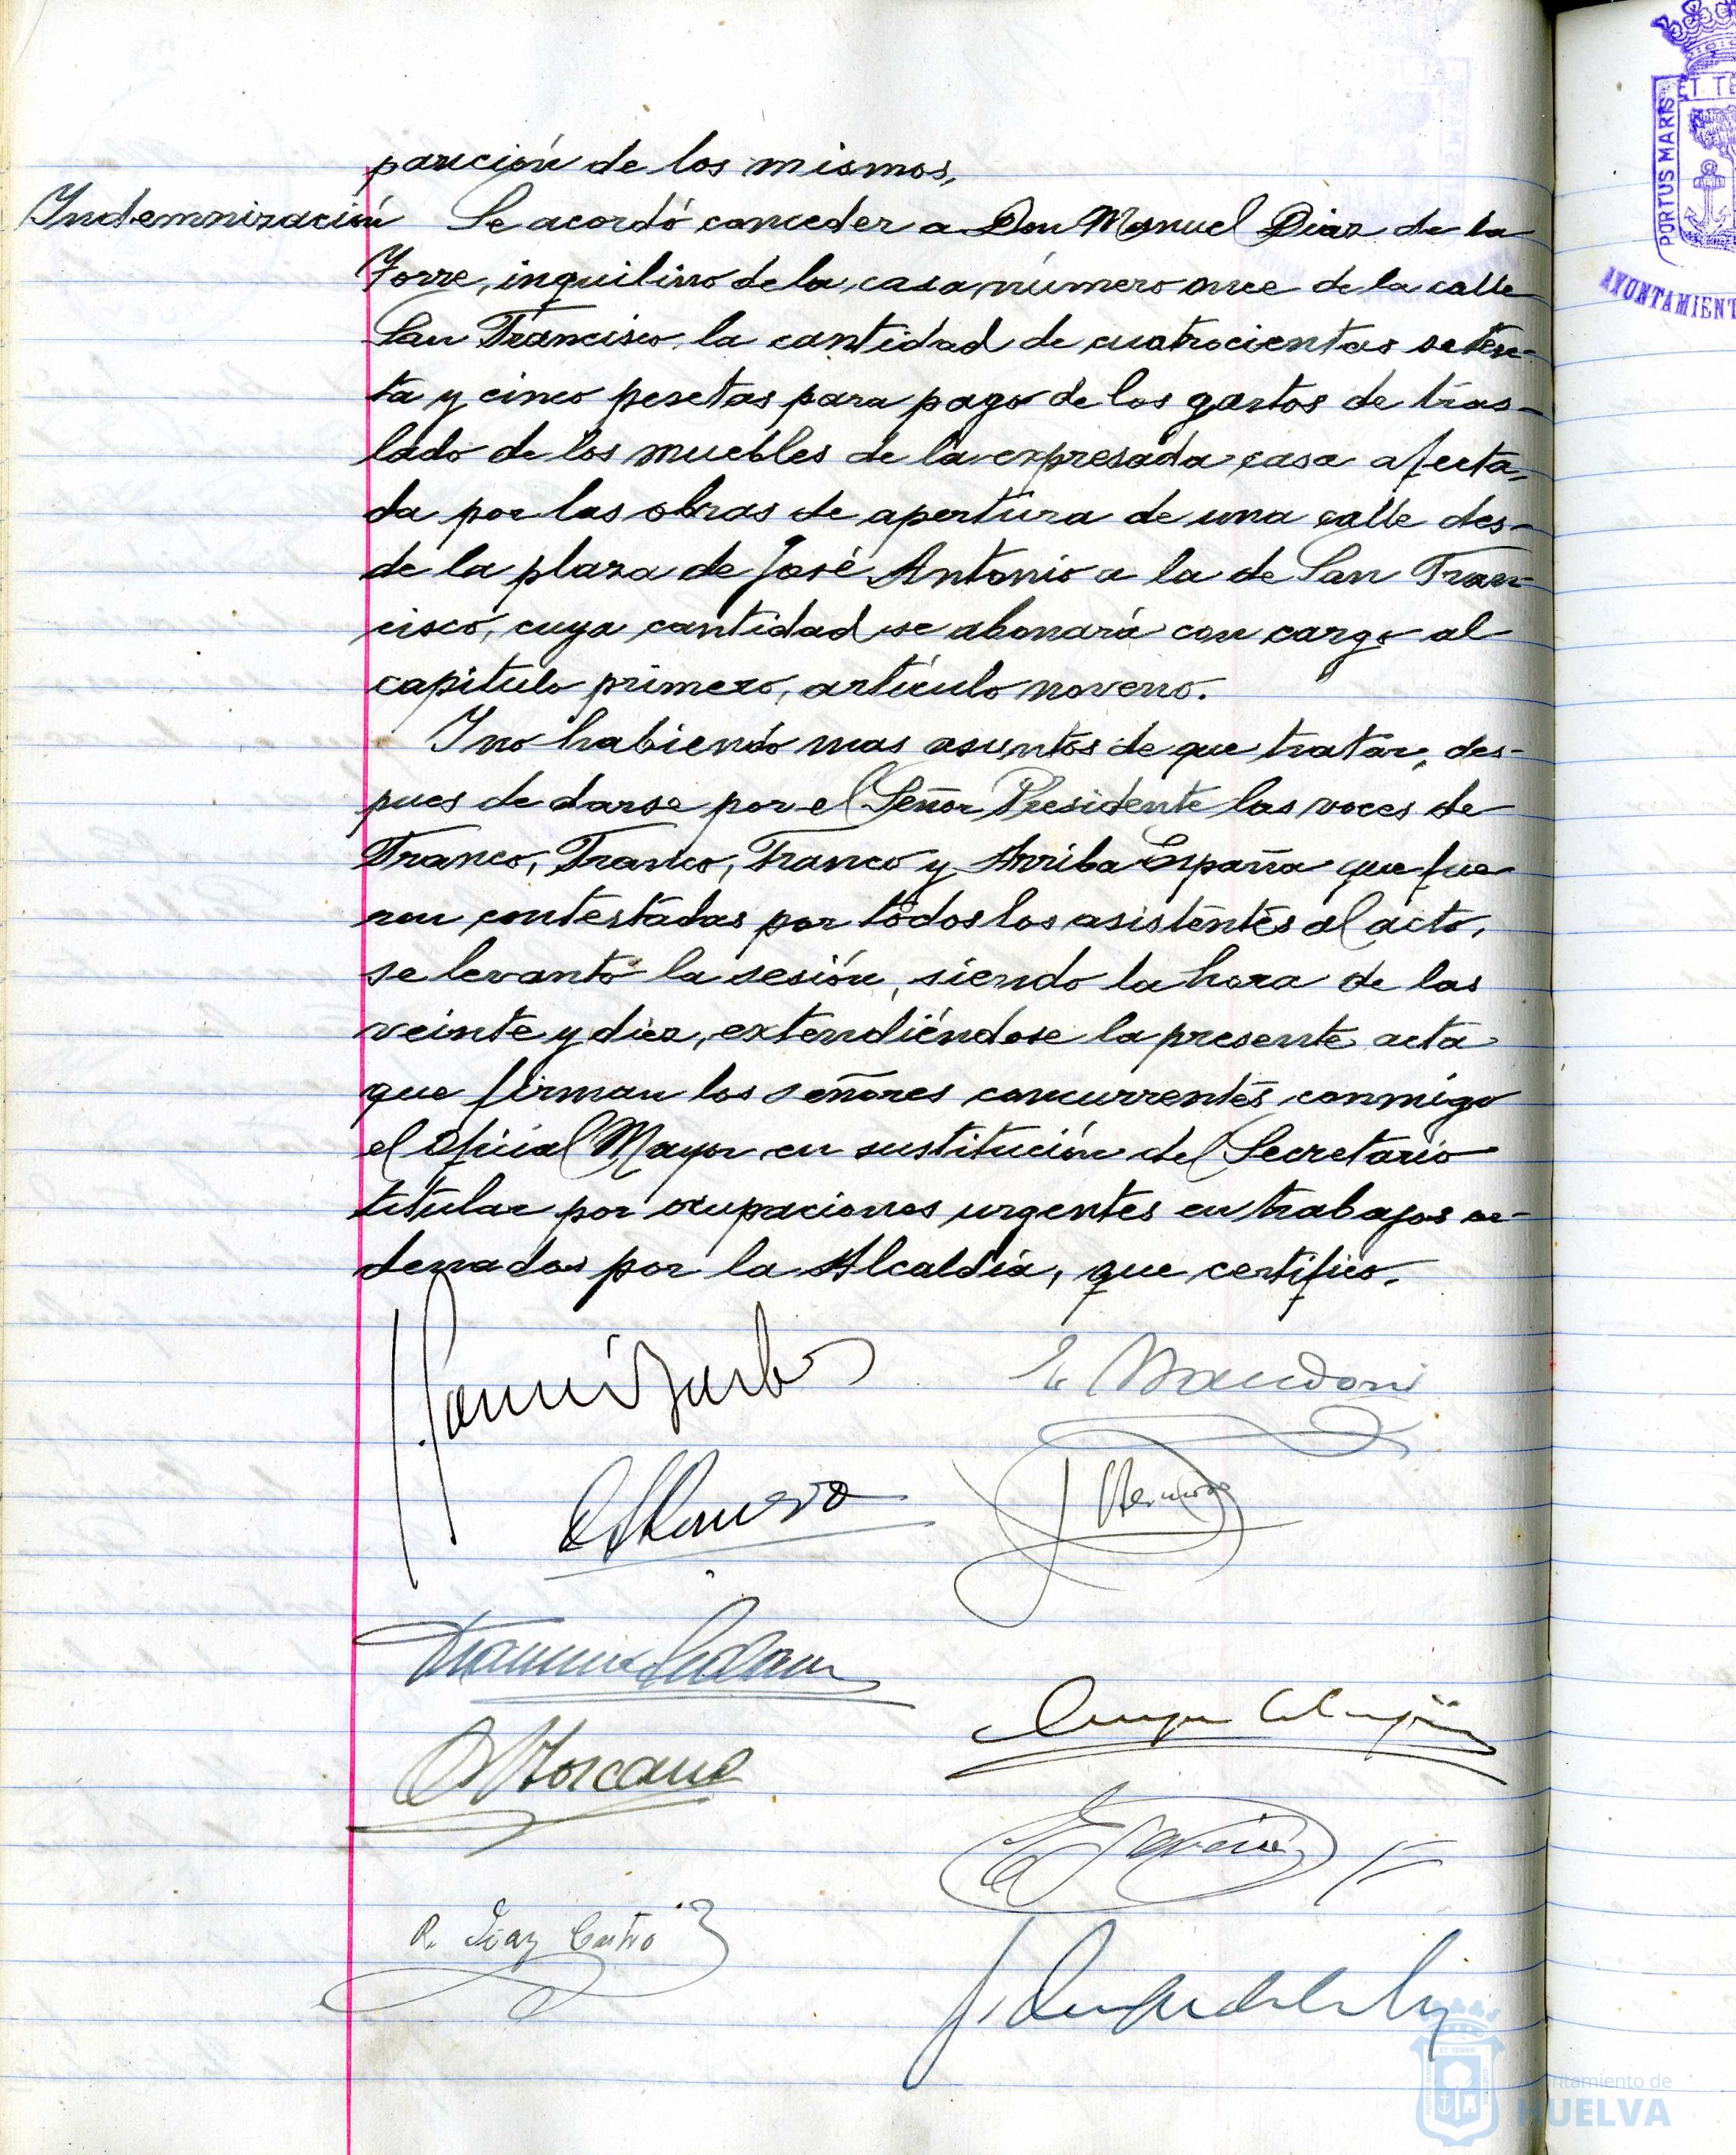 parición de los mismos.
Indemnización Se acordó conceder a Don Manuel Diaz de la
Torre, inquilino de la casa número once de la calle
San Francisco la cantidad de cuatrocientas seten-
ta y cinco pesetas para pago de los gastos de tras-
lado de los muebles de la expresada casa afecta-
da por las obras de apertura de una calle des-
de la plaza de José Antonio a la de San Fran-
cisco, cuya cantidad se abonará con cargo al
capítulo primero, artículo noveno.
Y no habiendo mas asuntos de que tratar, des-
pues de darse por el Señor Presidente las voces de
Franco, Franco, Franco y Arriba España que fue
ron contestadas por todos los asistentes al acto,
se levantó la sesión, siendo la hora de las
veinte y diez, extendiéndose la presente acta
que firman los señores concurrentes conmigo
el Oficial Mayor en sustitución del Secretario
titular por ocupaciones urgentes en trabajos or-
denados por la Alcaldía, que certifico.
R. Diaz Castro
PORTUS MARIS
ET TE
AYUNTAMIENT
Ayuntamiento de
HUELVA